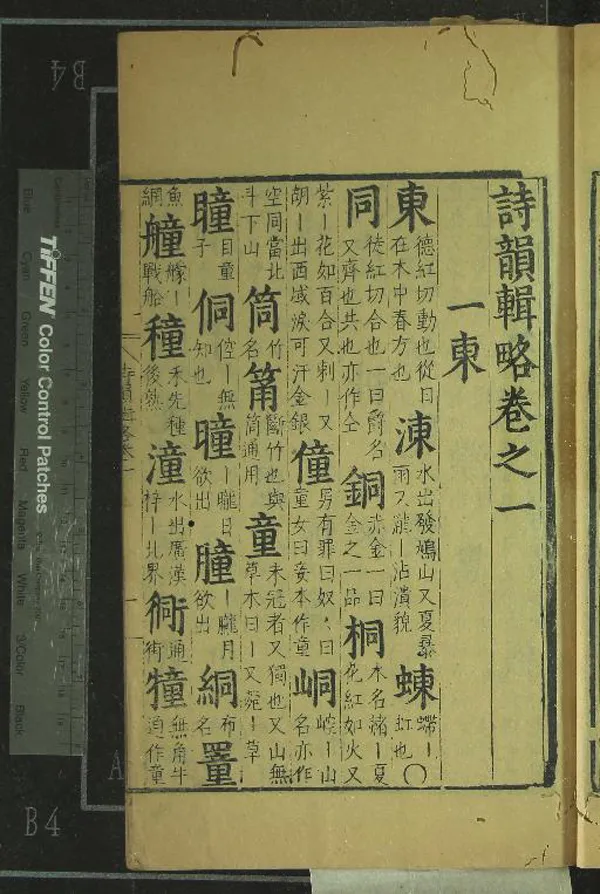 詩韻輯略卷之一
一東
東德紅切動也從日在木中春方也涷水出發鳩山又夏暴雨又瀧丨沾漬貌蝀螮丨虹也〇
同徒紅切合也一曰爵名又齊也共也亦作仝銅赤金一曰金之一品桐木名諸丨夏花紅如火又
紫丨花如百合又刺丨又胡丨出西域淚可汗金銀僮男有罪曰奴奴曰童女曰妾本作童峒崆丨山名亦作
空同當北斗下山筒竹名筩斷竹也與筒通用童未冠者又獨也又山無草木曰丨又菀丨草
瞳目童子侗倥丨無知也曈丨曨日欲出朣丨朧月欲出絅布名罿
魚網艟艨丨戰船穜禾先種後熟潼水出廣漢梓丨北界衕通街犝無角牛通作童
TIFFEN Color Control Patches
Blue
Cyan
Green
Yellow
Red
Magenta
White
3/Color
Black
B4
B4
A